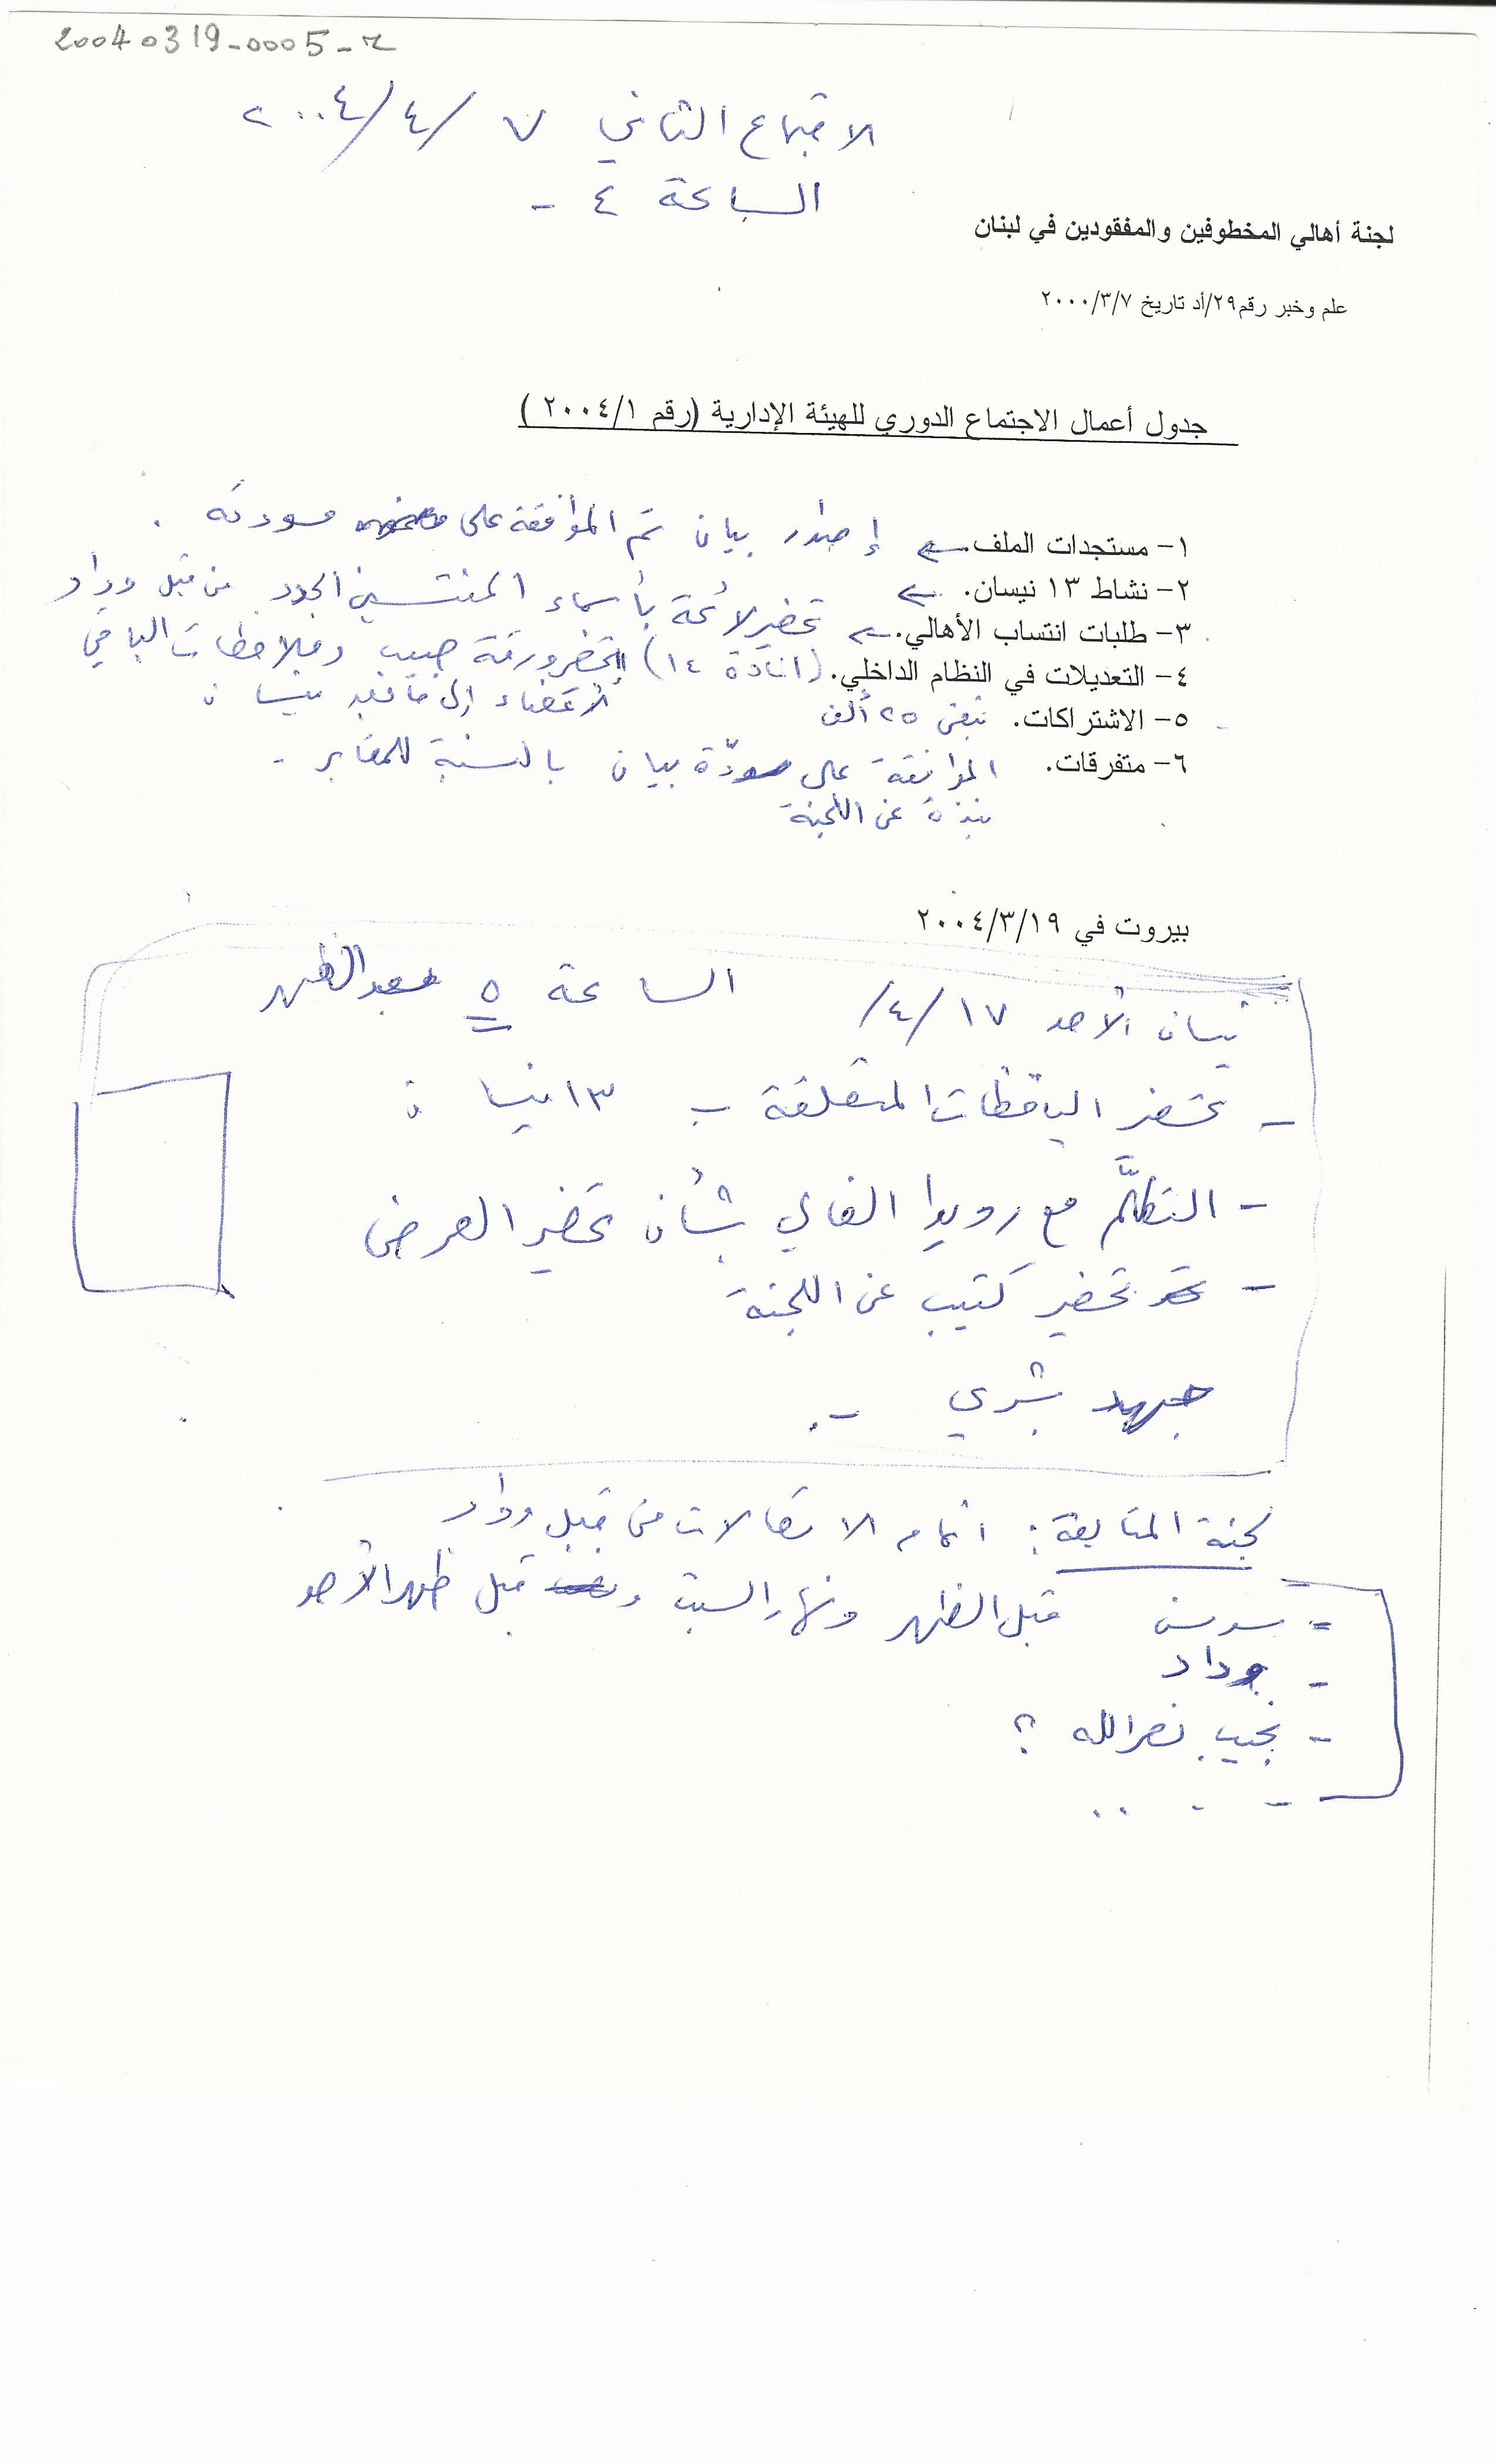 20040319-0005-2
الاجتماع الثاني ٧/٤/٢٠٠٤
الساعة ٤ -
لجنة أهالي المخطوفين والمفقودين في لبنان
علم وخبر رقم٢٩/أد تاريخ ٢٠٠٠/٣/٧
جدول أعمال الاجتماع الدوري للهيئة الإدارية (رقم ٢٠٠٤/١ )
١- مستجدات الملف. ← إصدار بيان تم الموافقة على مسودته .
٢- نشاط ١٣ نيسان. ←
٣- طلبات انتساب الأهالي. ← تحضير لائحة بأسماء المنتسبين الجدد من قبل وداد
٤- التعديلات في النظام الداخلي. (المادة ١٤) تحضر ورقة حبيب وملاحظات الباقي
الأعضاء إلى ما بعد نيسان
٥- الاشتراكات. تبقى ٢٥ ألف
٦- متفرقات. الموافقة على مسودّة بيان بالنسبة للمقابر -
نبذة عن اللجنة
بيروت في ٢٠٠٤/٣/١٩
نيسان الأحد ١٧/٤/ الساعة ٥ بعد الظهر
- تحضير اليافطات المتعلقة ب ١٣ نيسان
- التكلّم مع رويدا الغالي بشأن تحضير العرض
- تحضير كتيب عن اللجنة
جهد بشري -.
لجنة المتابعة: اتمام الاتصالات من قبل وداد
= سوسن قبل الظهر ونهار السبت و قبل ظهر الأحد
- وداد
- نجيب نصرالله ؟
- . . .